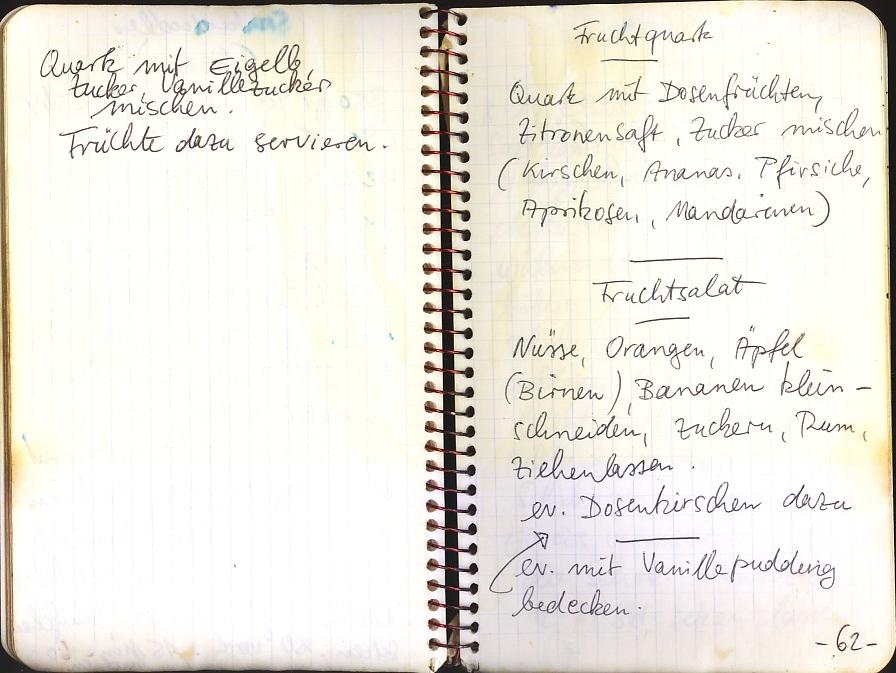 Quark mit Eigelb,
Zucker, Vanillezucker
mischen.
Früchte dazu servieren.
Fruchtquark
Quark mit Dosenfrüchten,
Zitronensaft, Zucker mischen
(Kirschen, Ananas, Pfirsiche,
Aprikosen, Mandarinen)
Fruchtsalat
Nüsse, Orangen, Äpfel
(Birnen), Bananen klein-
schneiden, zuckern, Rum,
ziehenlassen.
ev. Dosenkirschen dazu
ev. mit Vanillepudding
bedecken.
-62-